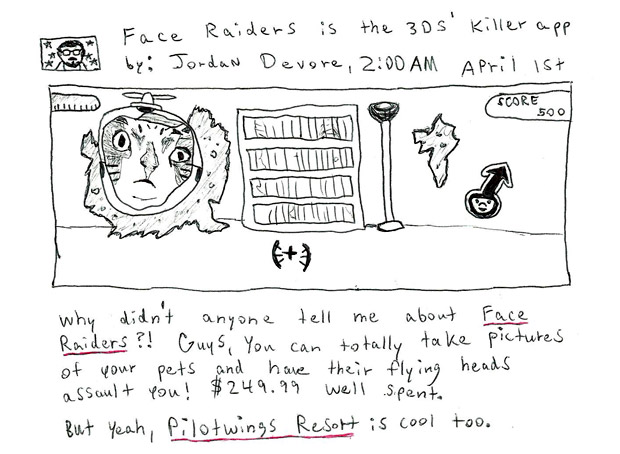 Face Raiders is the 3DS' Killer app
by: Jordan Devore, 2:00AM April 1st
SCORE
500
Why didn't anyone tell me about Face
Raiders?! Guys, You can totally take pictures
of your pets and have their flying heads
assault you! $249.99 well spent.
But yeah, Pilotwings Resort is cool too.